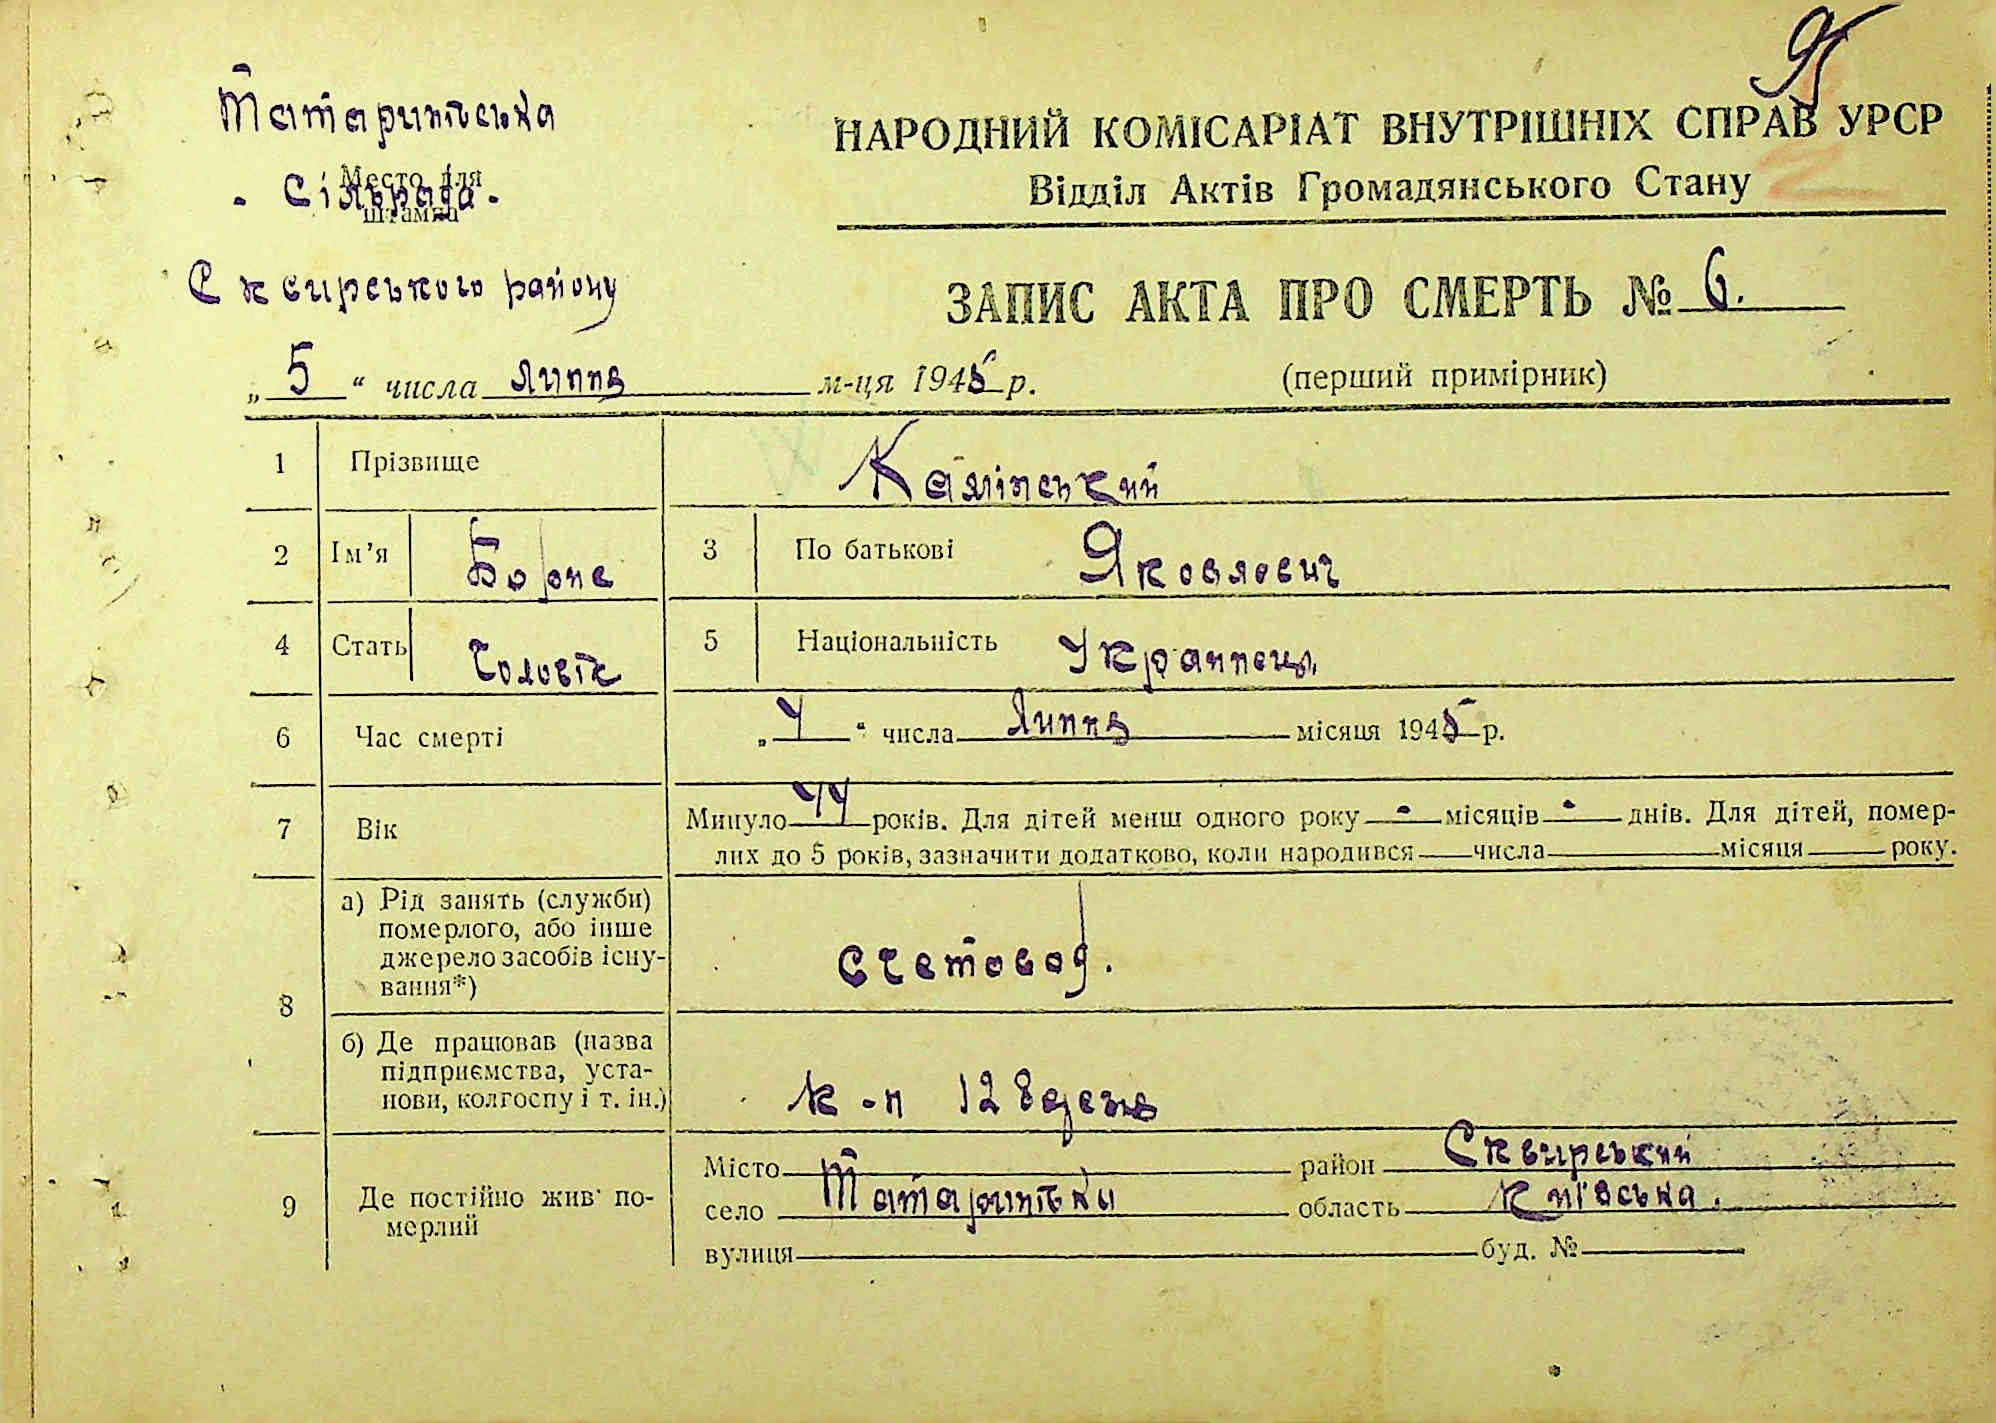 95
Татаринівська
НАРОДНИЙ КОМІСАРІАТ ВНУТРІШНІХ СПРАВ УРСР
Место для
- Сільрада -
штампа
Відділ Актів Громадянського Стану
Сквирського району
ЗАПИС АКТА ПРО СМЕРТЬ № 6.
„ 5 “ числа липня м-ця 1945 р.
(перший примірник)
1 Прізвище Калінський
2 Ім’я Борис 3 По батькові Яковлович
4 Стать Чоловік 5 Національність Українець
6 Час смерті „ 4 “ числа Липня місяця 1945 р.
7 Вік Минуло 44 років. Для дітей менш одного року - місяців - днів. Для дітей, помер-
лих до 5 років, зазначити додатково, коли народився числа місяця року.
8 а) Рід занять (служби)
померлого, або інше
джерело засобів існу-
вання*)
счетовод.
б) Де працював (назва
підприємства, уста-
нови, колгоспу і т. ін.)
к-п 12
9 Де постійно жив по-
мерлий
Місто район Сквирський
село Татаринівки область Київська.
вулиця буд. №